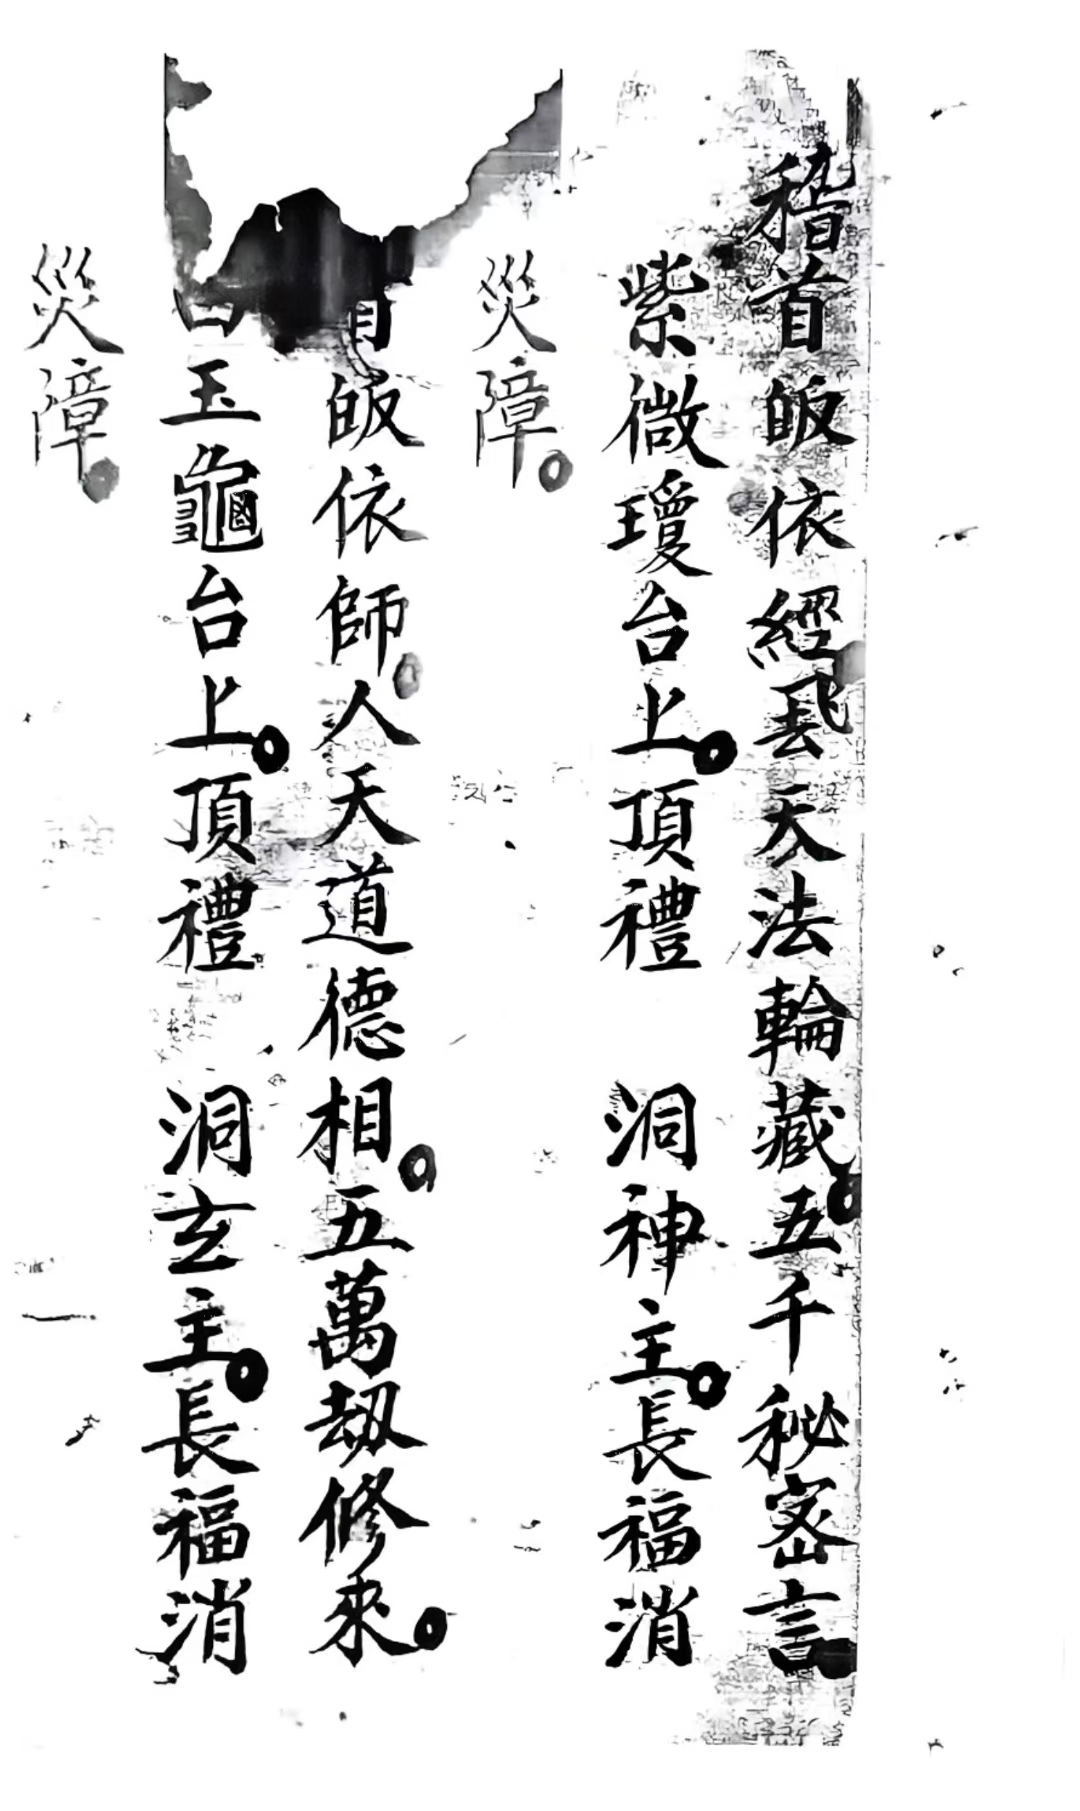 稽首皈依經昙天法輪藏五千秘密言
紫微瓊台上頂禮 洞神主長福消
災障
皈依師人天道德相五萬劫修來
玉龜台上頂禮 洞玄主長福消
災障